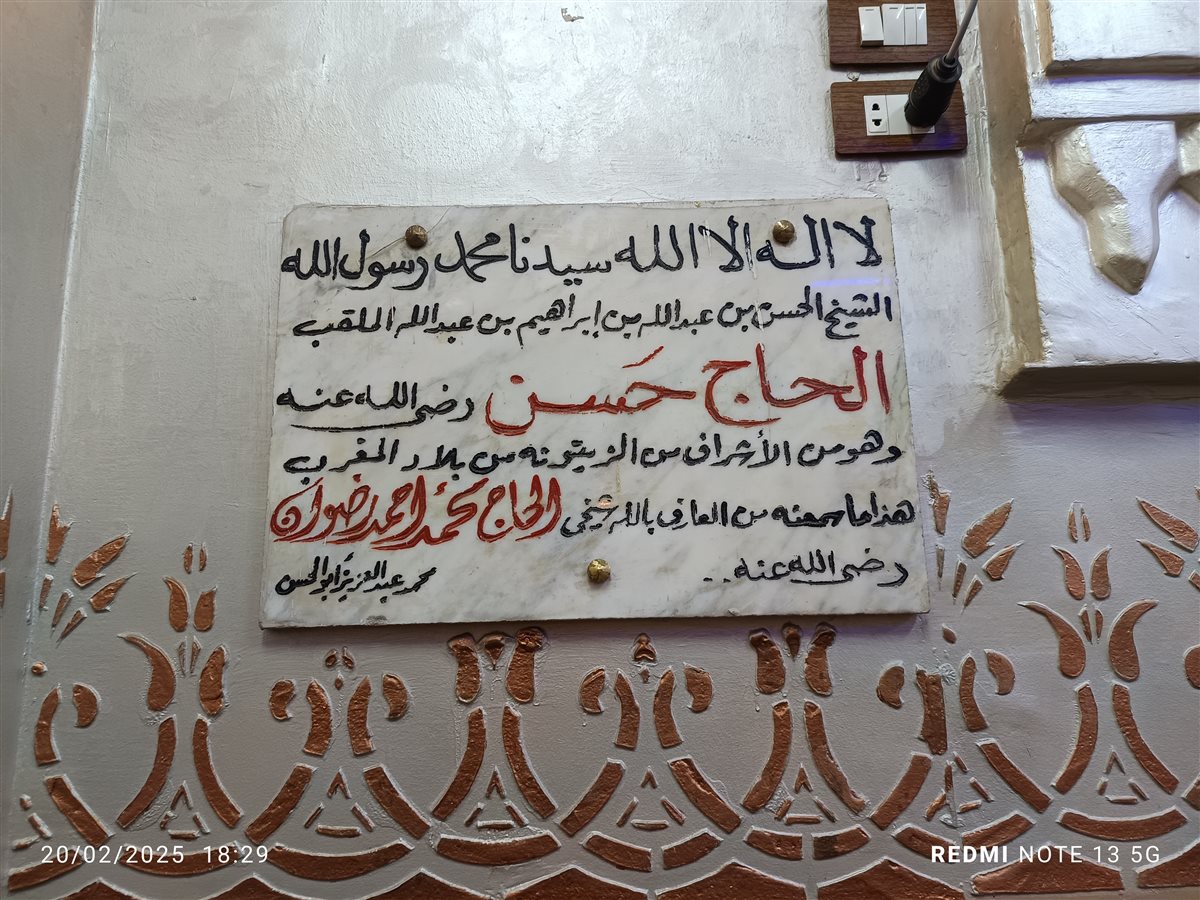 لا اله الا الله سيدنا محمد رسول الله
الشيخ الحسن بن عبدالله بن إبراهيم بن عبدالله الملقب
الحاج حَسن رضى الله عنه
وهو من الأشراف من الزيتونه من بلاد المغرب
هذا ما سمعته من العارف بالله شيخي الحاج محمد احمد رضوان
رضى الله عنه..
محمد عبد العزيز ابو الحسن
20/02/2025 18:29
REDMI NOTE 13 5G